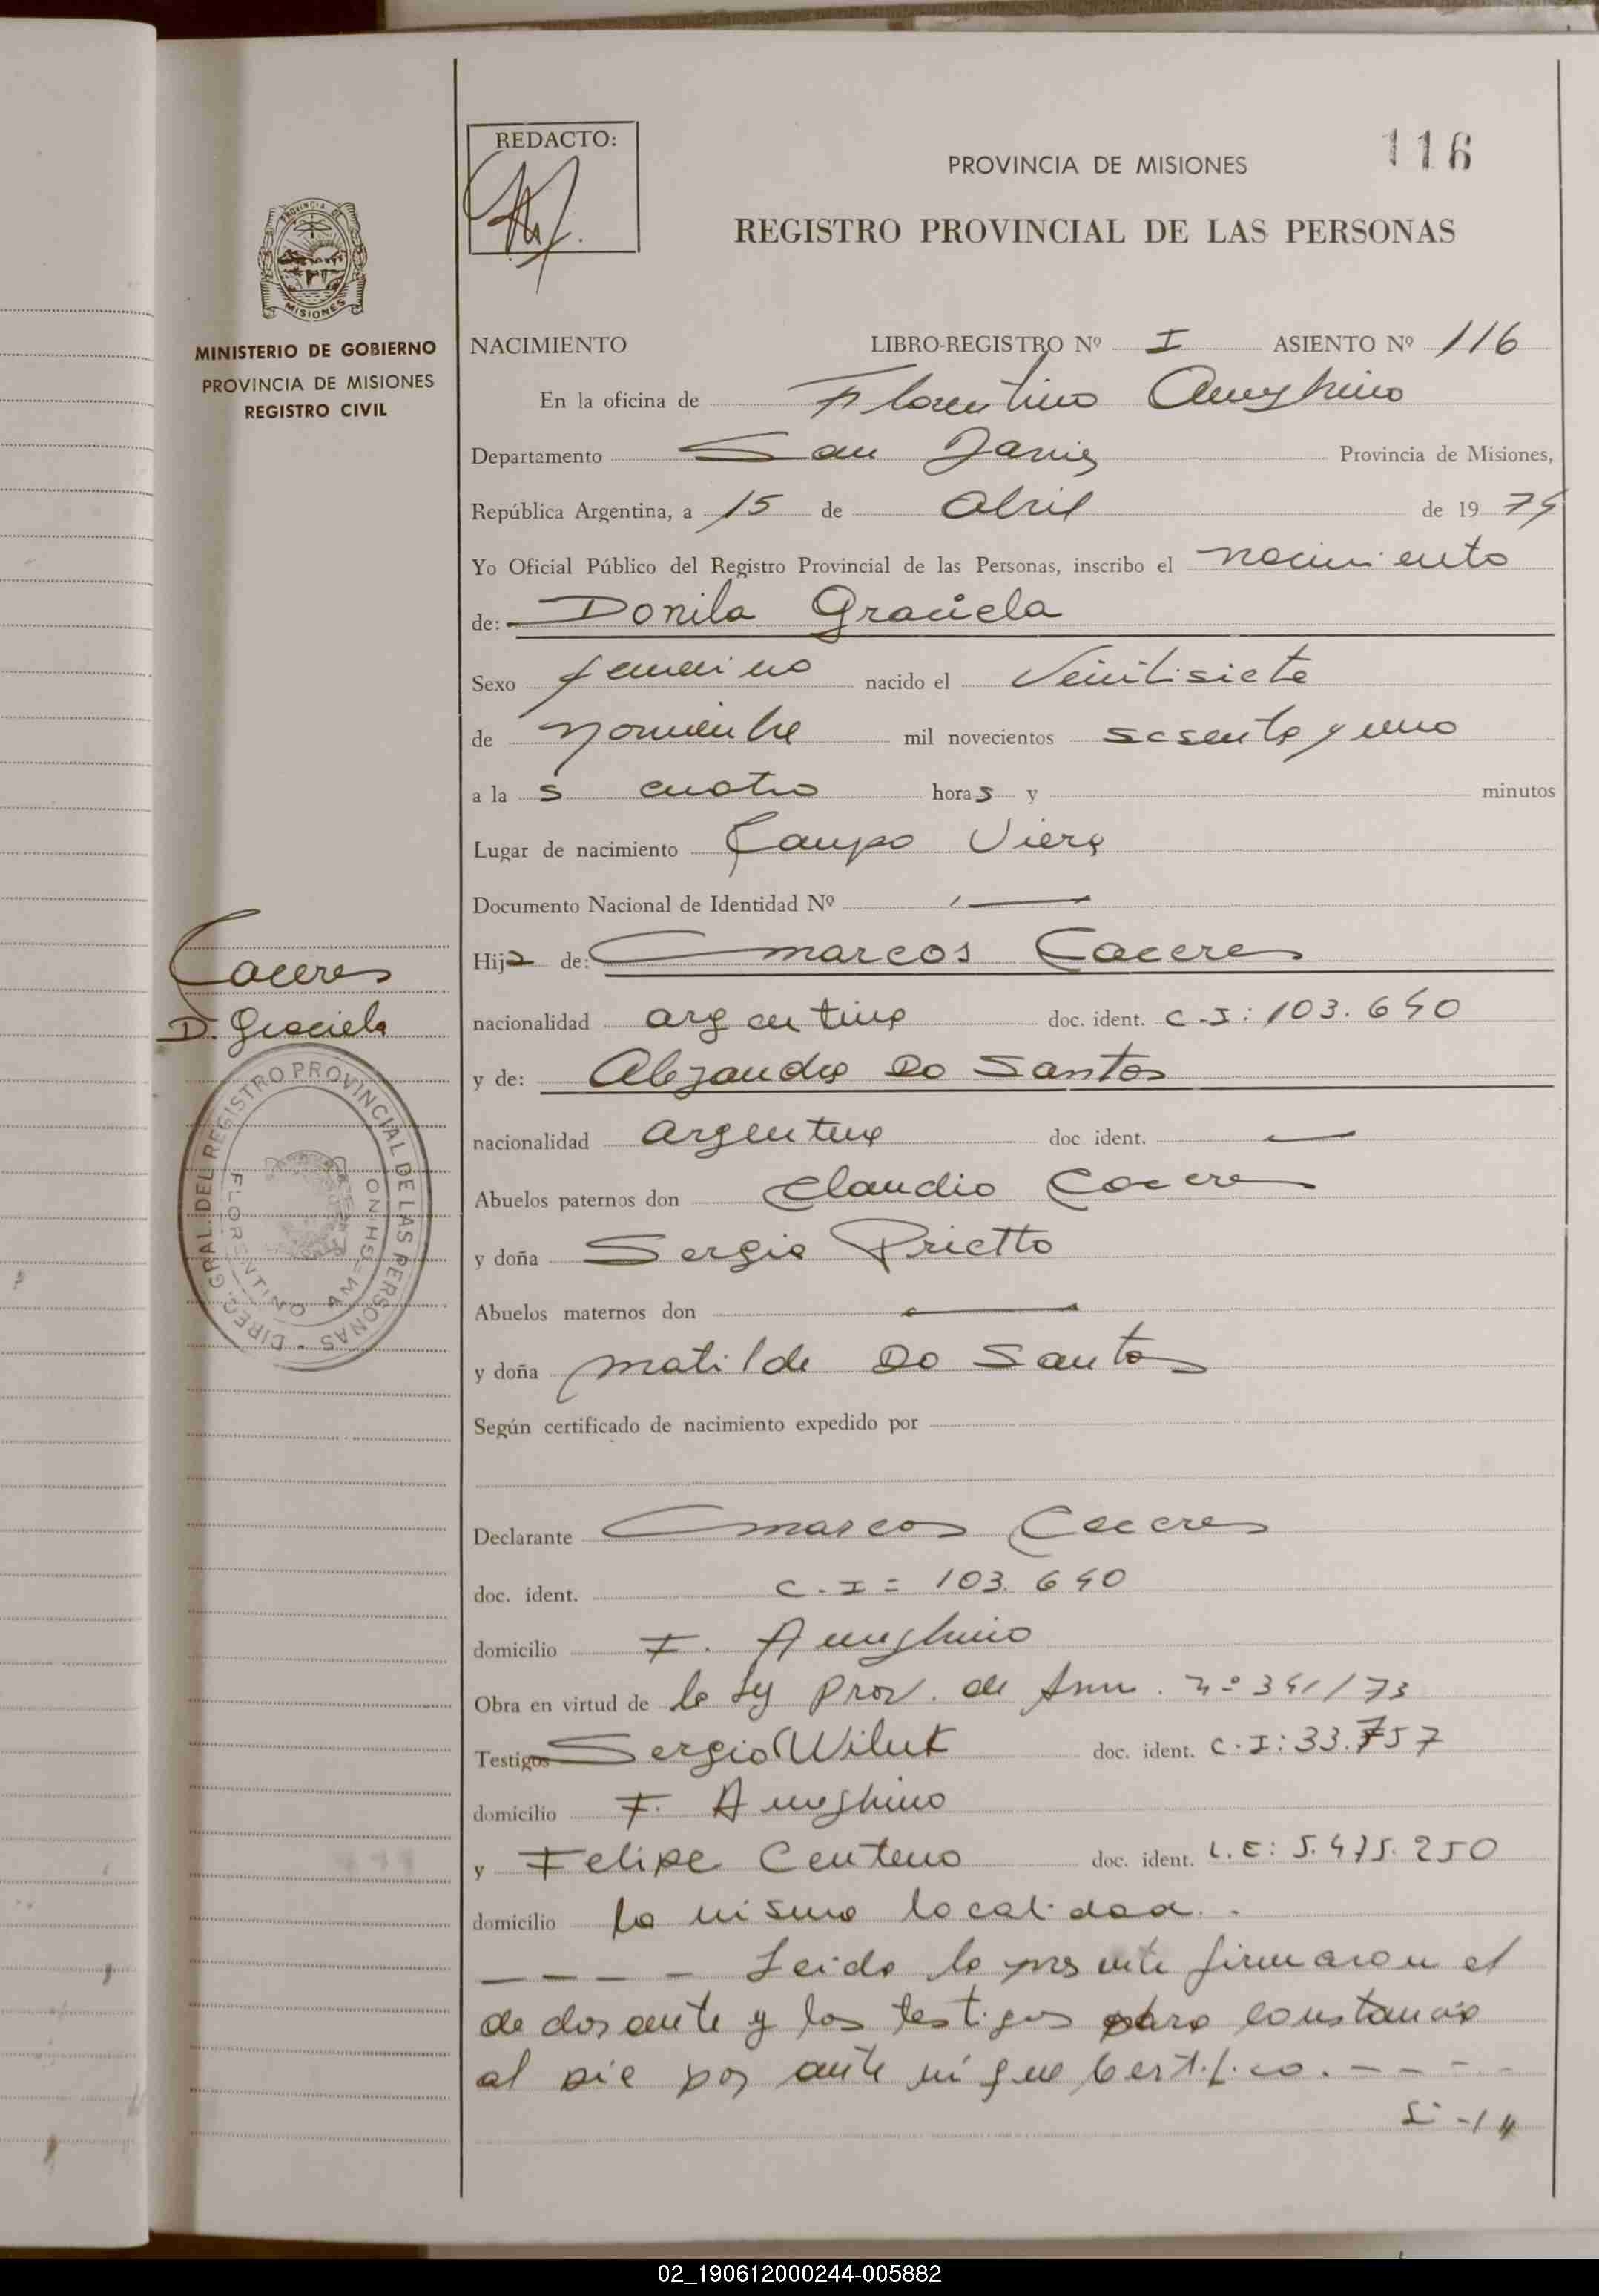 REDACTO:
116
PROVINCIA DE MISIONES
REGISTRO PROVINCIAL DE LAS PERSONAS
PROVINCIA DE
MISIONES
MINISTERIO DE GOBIERNO
PROVINCIA DE MISIONES
REGISTRO CIVIL
NACIMIENTO LIBRO-REGISTRO Nº I ASIENTO Nº 116
En la oficina de Florentino Ameghino
Departamento San Javier Provincia de Misiones,
República Argentina, a 15 de abril de 1974
Yo Oficial Público del Registro Provincial de las Personas, inscribo el nacimiento
de: Donila Graciela
Sexo femenino nacido el Veintisiete
de noviembre mil novecientos sesenta y uno
a la s cuatro horas y minutos
Lugar de nacimiento Campo Viera
Documento Nacional de Identidad Nº
Hija de: Marcos Caceres
nacionalidad argentina doc. ident. C.I: 103.640
y de: Alejandra Do Santos
nacionalidad argentina doc ident.
Abuelos paternos don Claudio Caceres
y doña Sergia Prietto
Abuelos maternos don
y doña Matilde Do Santos
Según certificado de nacimiento expedido por
Declarante Marcos Caceres
doc. ident. C.I= 103.640
domicilio F. Ameghino
Obra en virtud de la Ley Prov. de Amn. nº 341/73
Testigos Sergio Wilut doc. ident. C.I: 33.757
domicilio F. Ameghino
y Felipe Centeno doc. ident. L.E: 5.475.250
domicilio la misma localidad.
Leida la presente firmaron el
declarante y los testigos para constancia
al pie por ante mi que Certifico.
Caceres
D. Graciela
DIREC. GRAL. DEL REGISTRO PROVINCIAL DE LAS PERSONAS
FLORENTINO AMEGHINO
02_190612000244-005882